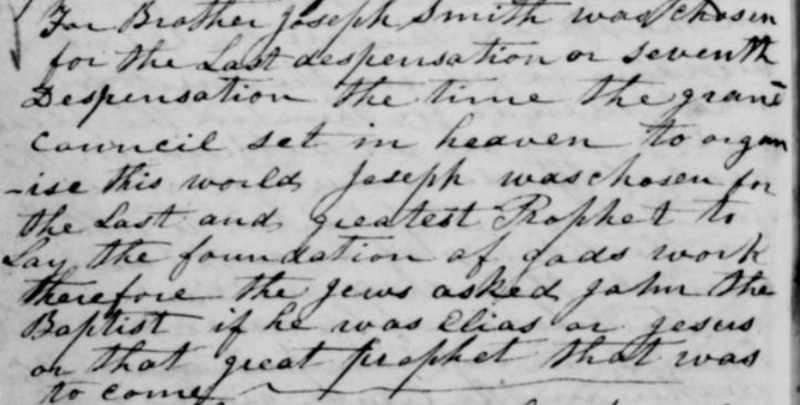 For Brother Joseph Smith was chosen
for the Last despensation or seventh
Despensation the time the grand
council set in heaven to organ
-ise this world Joseph was chosen for
the Last and greatest Prophet to
Lay the foundation of gods work
therefore the Jews asked John the
Baptist if he was Elias or jesus
or that great prophet that was
to come